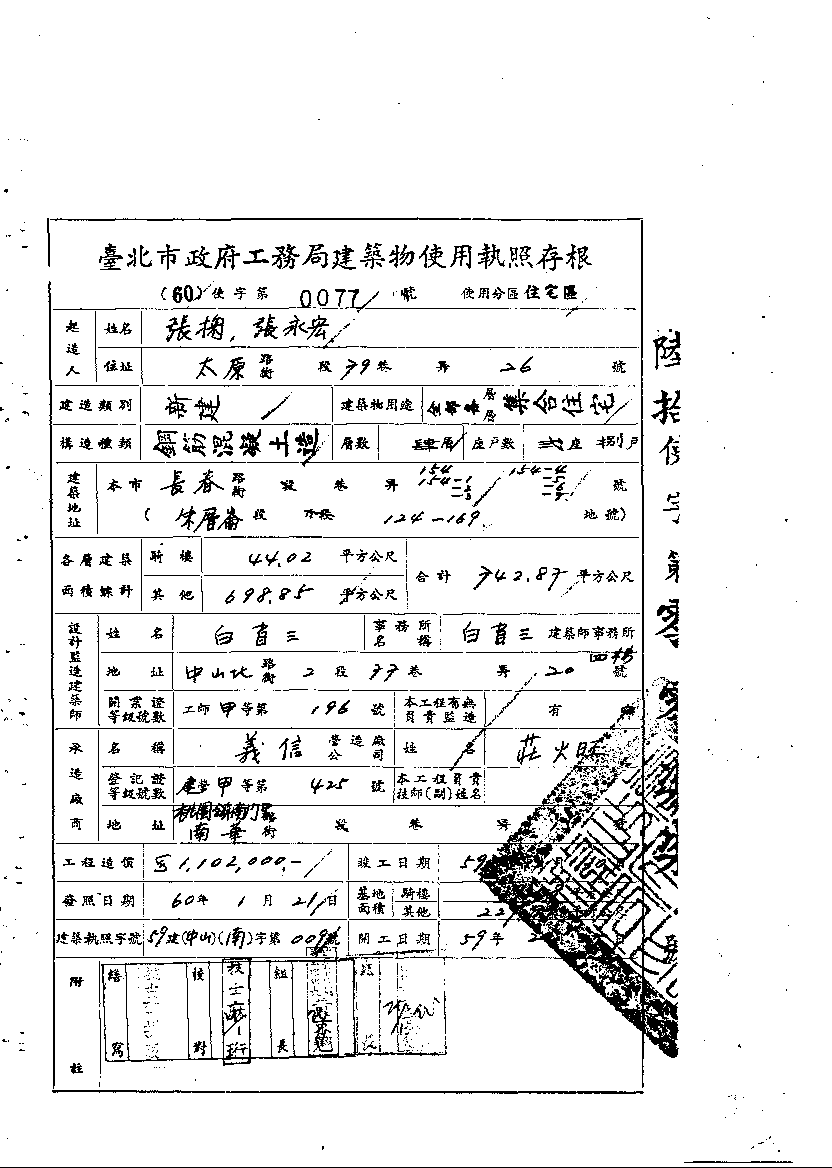 臺北市政府工務局建築物使用執照存根
(60) 使字第 0077 號 使用分區 住宅區
起造人 姓名 張掬, 張永宏
住址 太原 路街 段 79 巷 弄 26 號
建造類別 新建 建築物用途 全部各層 集合住宅
構造種類 鋼筋混凝土造 層數 肆層 座戶數 弍座 捌戶
建築地址 本市 長春 路街 段 巷 弄 154 154-1 154-4 號
( 朱厝崙 段 小段 124-169 地號)
各層建築面積總計 騎樓 44.02 平方公尺 合計 742.87 平方公尺
其他 698.85 平方公尺
設計監造建築師 姓名 事務所名稱 建築師事務所
地址 中山北 路街 2 段 77 巷 弄 20 號 四樓
開業證等級號數 工師 甲 等第 196 號 本工程有無負責監造 有
承造廠商 名稱 義信 營造廠公司 姓名
登記證等級號數 建營 甲 等第 425 號 本工程負責技師(副)姓名
地址 桃園鎮南門里 南華 路街 段 巷 弄
工程造價 1,102,000,- 竣工日期 59
發照日期 60年 1 月 21 日 基地面積 騎樓
其他 22
建築執照字號 59 建(中山)(南)字第 009 號 開工日期 59年 2
附註 繕寫 校對 組長
陸拾使字第零零柒柒號